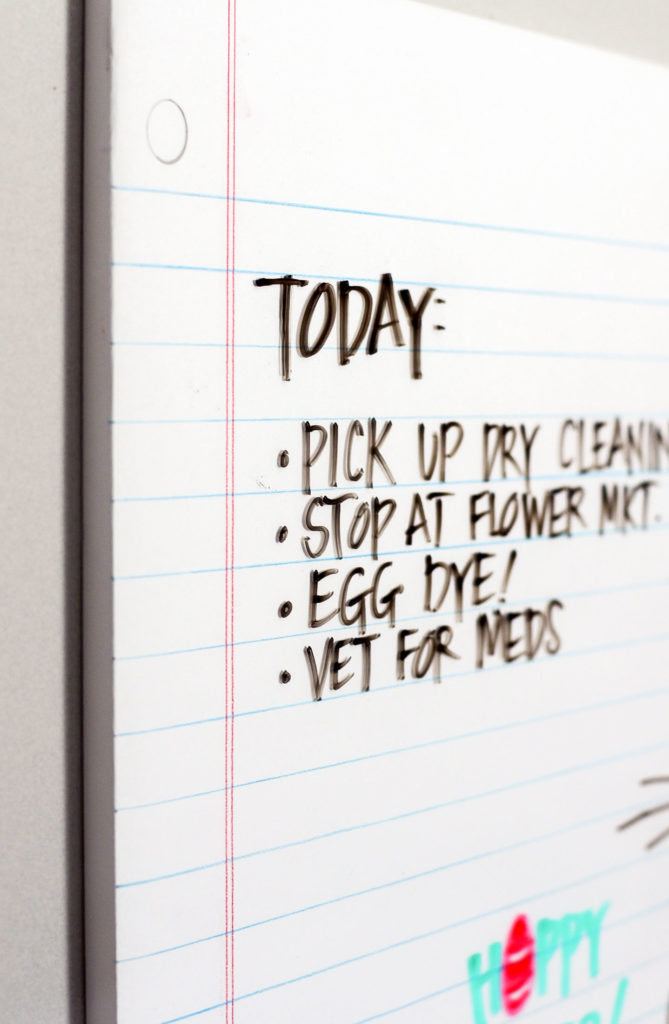 TODAY:
• PICK UP DRY CLEANIN
• STOP AT FLOWER MKT.
• EGG DYE!
• VET FOR MEDS
HOPPY